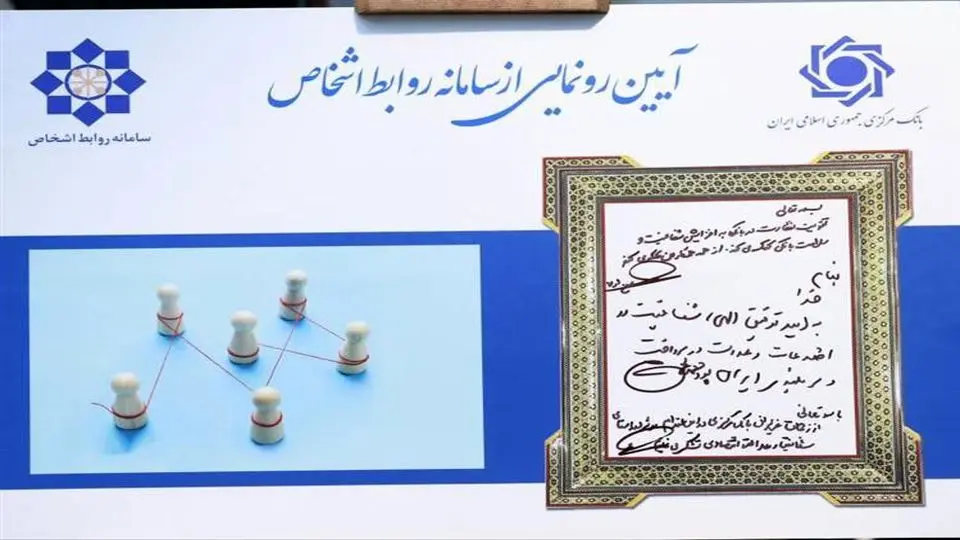 آیین رونمایی از سامانه روابط اشخاص
بانک مرکزی جمهوری اسلامی ایران
سامانه روابط اشخاص
بسمه تعالی
تقویت نظارت در بانک به افزایش شفافیت و
سلامت بانکی کمک می کند. از همه همکاران می کنم
بنام خدا
به امید توفیق الهی، شفافیت در
اطلاعات و عدالت در پرداخت
در ایران
باسمه تعالی
از زحمات عزیزان بانک مرکزی در
شفافیت و اقتصادی تشکر می